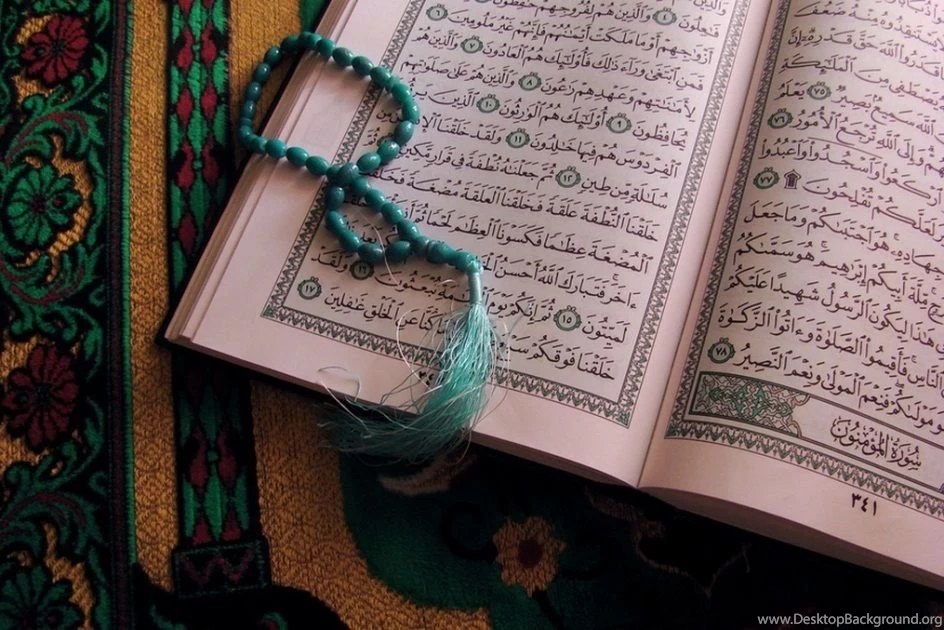 يَسْتَنقِذُوهُ مِنْهُ ضَعُفَ
قَدَرُوا۟ ٱللَّهَ حَقَّ قَدْرِهِۦٓ إِنَّ
يَصْطَفِى مِنَ ٱلْمَلَٰٓئِكَةِ
ٱللَّهَ سَمِيعٌۢ بَصِيرٌ ٧٥ يَعْلَمُ
وَإِلَى ٱللَّهِ تُرْجَعُ ٱلْأُمُورُ ٧٦
ٱرْكَعُوا۟ وَٱسْجُدُوا۟ وَٱعْبُدُوا۟
لَعَلَّكُمْ تُفْلِحُونَ ۩ ٧٧
جِهَادِهِۦ هُوَ ٱجْتَبَىٰكُمْ وَمَا جَعَلَ
مِّلَّةَ أَبِيكُمْ إِبْرَٰهِيمَ هُوَ سَمَّىٰكُمُ
هَٰذَا لِيَكُونَ ٱلرَّسُولُ شَهِيدًا عَلَيْكُمْ
ٱلنَّاسِ فَأَقِيمُوا۟ ٱلصَّلَوٰةَ وَءَاتُوا۟ ٱلزَّكَوٰةَ
هُوَ مَوْلَىٰكُمْ فَنِعْمَ ٱلْمَوْلَىٰ وَنِعْمَ ٱلنَّصِيرُ ٧٨
سُورَةُ المُؤْمِنُونَ
٣٤١
فَٰعِلُونَ ٤ وَٱلَّذِينَ هُمْ لِفُرُوجِهِمْ حَٰفِظُونَ
أَزْوَٰجِهِمْ أَوْ مَا مَلَكَتْ أَيْمَٰنُهُمْ فَإِنَّهُمْ غَيْرُ مَلُومِينَ ٦
فَمَنِ ٱبْتَغَىٰ وَرَآءَ ذَٰلِكَ فَأُو۟لَٰٓئِكَ هُمُ ٱلْعَادُونَ ٧ وَٱلَّذِينَ هُمْ
لِأَمَٰنَٰتِهِمْ وَعَهْدِهِمْ رَٰعُونَ ٨ وَٱلَّذِينَ هُمْ عَلَىٰ صَلَوَٰتِهِمْ
يُحَافِظُونَ ٩ أُو۟لَٰٓئِكَ هُمُ ٱلْوَٰرِثُونَ ١٠ ٱلَّذِينَ
ٱلْفِرْدَوْسَ هُمْ فِيهَا خَٰلِدُونَ ١١ وَلَقَدْ خَلَقْنَا
سُلَٰلَةٍ مِّن طِينٍ ١٢ ثُمَّ جَعَلْنَٰهُ نُطْفَةً فِى قَرَارٍ مَّكِينٍ
خَلَقْنَا ٱلنُّطْفَةَ عَلَقَةً فَخَلَقْنَا ٱلْعَلَقَةَ مُضْغَةً فَخَلَقْنَا
ٱلْمُضْغَةَ عِظَٰمًا فَكَسَوْنَا ٱلْعِظَٰمَ لَحْمًا ثُمَّ
ءَاخَرَ فَتَبَارَكَ ٱللَّهُ أَحْسَنُ بَعْدَ
لَمَيِّتُونَ ١٥ ثُمَّ إِنَّكُمْ يَوْمَ تُبْعَثُونَ ١٦ وَلَقَدْ
خَلَقْنَا فَوْقَكُمْ كُنَّا عَنِ ٱلْخَلْقِ غَٰفِلِينَ ١٧
www.DesktopBackground.org